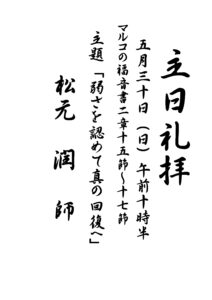 主日礼拝
五月三十日（日）午前十時半
マルコの福音書二章十五節〜十七節
主題「弱さを認めて真の回復へ」
松元潤師